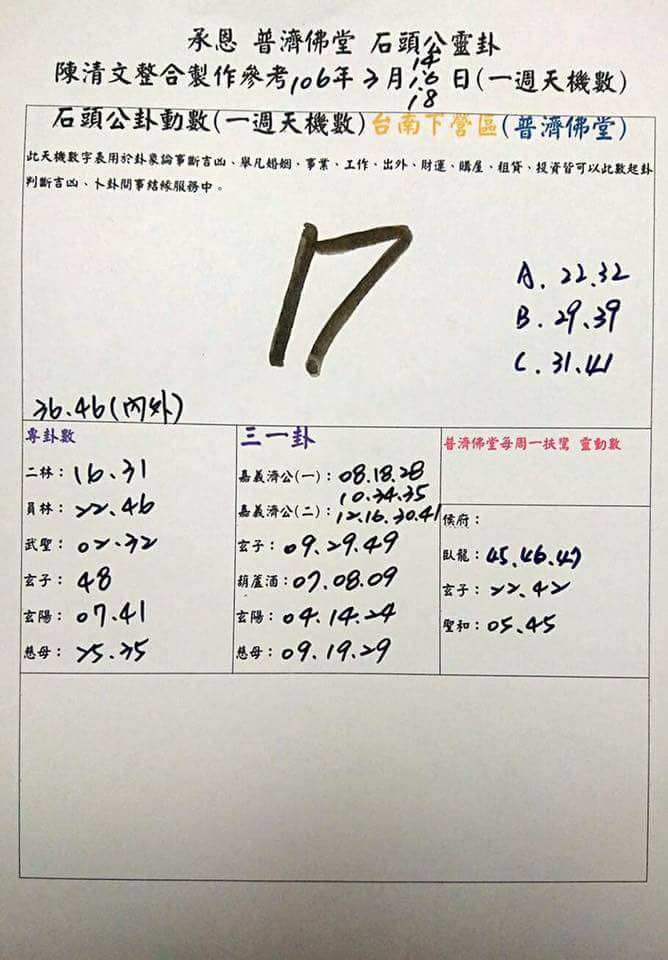 承恩 普濟佛堂 石頭公靈卦
陳清文整合製作參考106年3月14.16.18日(一週天機數)
石頭公卦動數(一週天機數)台南下營區(普濟佛堂)
此天機數字表用於卦象論事斷吉凶、舉凡婚姻、事業、工作、出外、財運、購屋、租貸、投資皆可以此數起卦
判斷吉凶、卜卦問事結緣服務中。
17
A. 22.32
B. 29.39
C. 31.41
36.46(內外)
專卦數
二林：16.31
員林：22.46
武聖：02.32
玄子：48
玄陽：07.41
慈母：25.35
三一卦
嘉義濟公(一)：08.18.28
10.34.35
嘉義濟公(二)：12.16.30.41
玄子：09.29.49
葫蘆酒：07.08.09
玄陽：04.14.24
慈母：09.19.29
普濟佛堂每周一扶鸞 靈動數
侯府：
臥龍：45.46.47
玄子：22.42
聖和：05.45